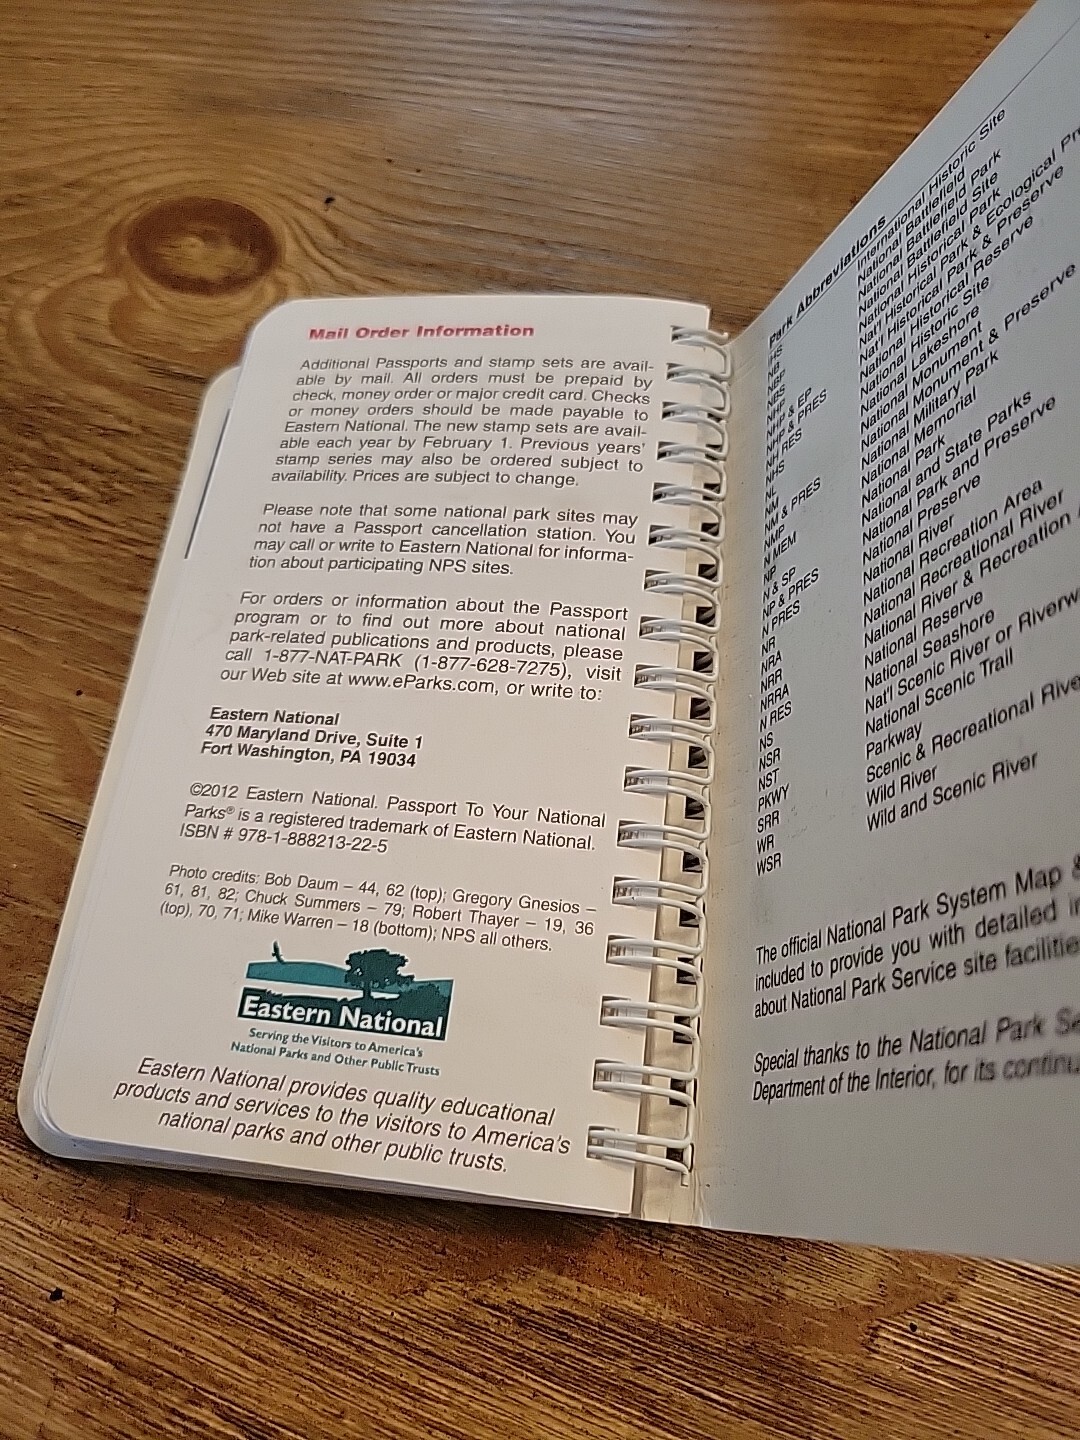 Mail Order Information
Additional Passports and stamp sets are avail-
able by mail. All orders must be prepaid by
check, money order or major credit card. Checks
or money orders should be made payable to
Eastern National. The new stamp sets are avail-
able each year by February 1. Previous years'
stamp series may also be ordered subject to
availability. Prices are subject to change.
Please note that some national park sites may
not have a Passport cancellation station. You
may call or write to Eastern National for informa-
tion about participating NPS sites.
For orders or information about the Passport
program or to find out more about national
park-related publications and products, please
call 1-877-NAT-PARK (1-877-628-7275), visit
our Web site at www.eParks.com, or write to:
Eastern National
470 Maryland Drive, Suite 1
Fort Washington, PA 19034
©2012 Eastern National. Passport To Your National
Parks® is a registered trademark of Eastern National.
ISBN # 978-1-888213-22-5
Photo credits: Bob Daum – 44, 62 (top); Gregory Gnesios –
61, 81, 82; Chuck Summers – 79; Robert Thayer – 19, 36
(top), 70, 71; Mike Warren – 18 (bottom); NPS all others.
Eastern National
Serving the Visitors to America's
National Parks and Other Public Trusts
Eastern National provides quality educational
products and services to the visitors to America's
national parks and other public trusts.
Park Abbreviations
IHS International Historic Site
NB National Battlefield
NBP National Battlefield Park
NBS National Battlefield Site
NHP National Historical Park
NHP & EP Nat'l Historical Park & Ecological
NHP & PRES Nat'l Historical Park & Preserve
NH RES National Historical Reserve
NHS National Historic Site
NL National Lakeshore
NM National Monument
NM & PRES National Monument & Preserve
NMP National Military Park
N MEM National Memorial
NP National Park
N & SP National and State Parks
NP & PRES National Park and Preserve
N PRES National Preserve
NR National River
NRA National Recreation Area
NRR National Recreational River
NRRA National River & Recreation
N RES National Reserve
NS National Seashore
NSR Nat'l Scenic River or
NST National Scenic Trail
PKWY Parkway
SRR Scenic & Recreational
WR Wild River
WSR Wild and Scenic River
The official National Park System Map &
included to provide you with detailed
about National Park Service site
Special thanks to the National Park
Department of the Interior, for its